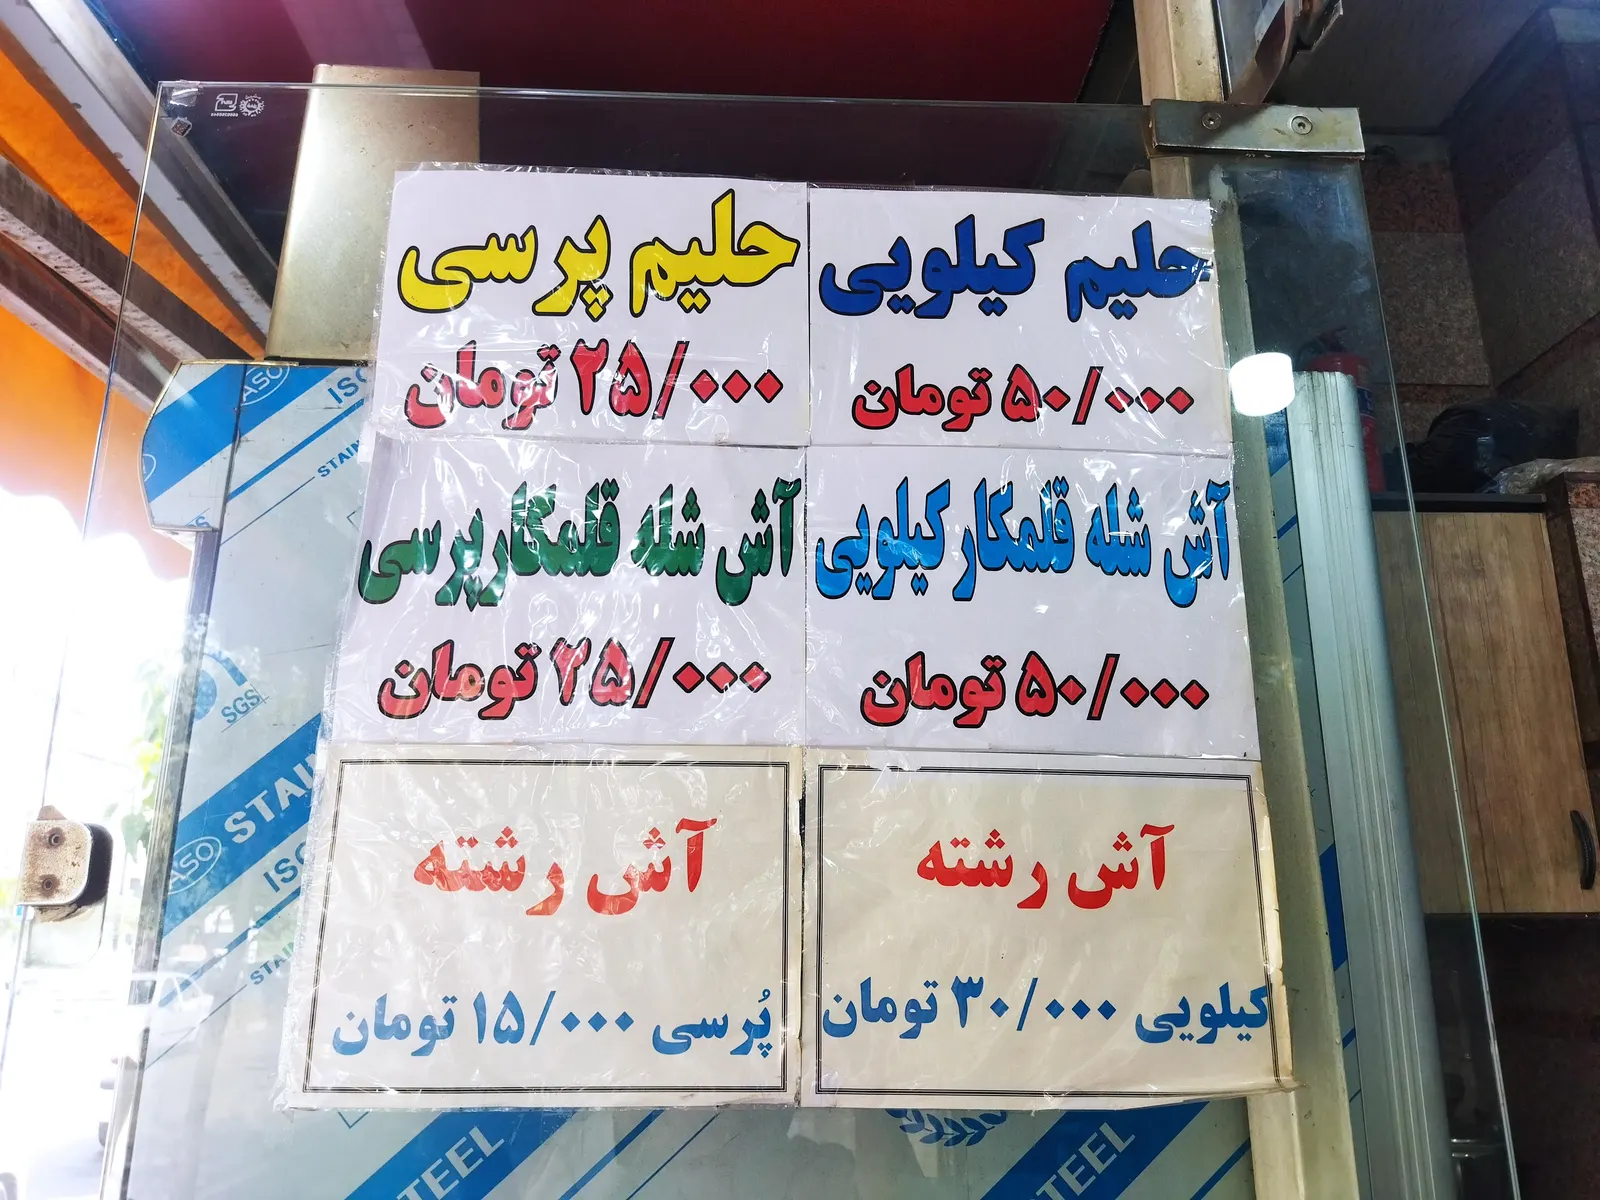 حلیم کیلویی
۵۰/۰۰۰ تومان
حلیم پرسی
۲۵/۰۰۰ تومان
آش شله قلمکار کیلویی
۵۰/۰۰۰ تومان
آش شله قلمکارپرسی
۲۵/۰۰۰ تومان
آش رشته
کیلویی ۳۰/۰۰۰ تومان
آش رشته
پُرسی ۱۵/۰۰۰ تومان
ASO
ISO
STAIN
SGS
ASO
STAI
ISO
STAIN
STEEL
STEEL